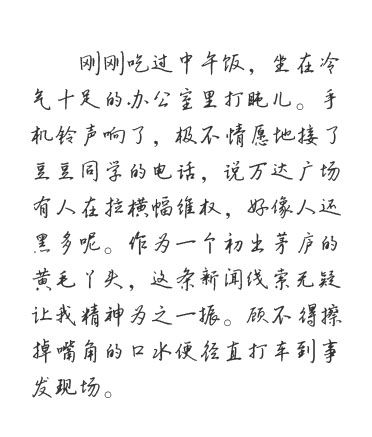 刚刚吃过中午饭，坐在冷
气十足的办公室里打盹儿。手
机铃声响了，极不情愿地接了
豆豆同学的电话，说万达广场
有人在拉横幅维权，好像人还
黑多呢。作为一个初出茅庐的
黄毛丫头，这条新闻线索无疑
让我精神为之一振。顾不得擦
掉嘴角的口水便径直打车到事
发现场。